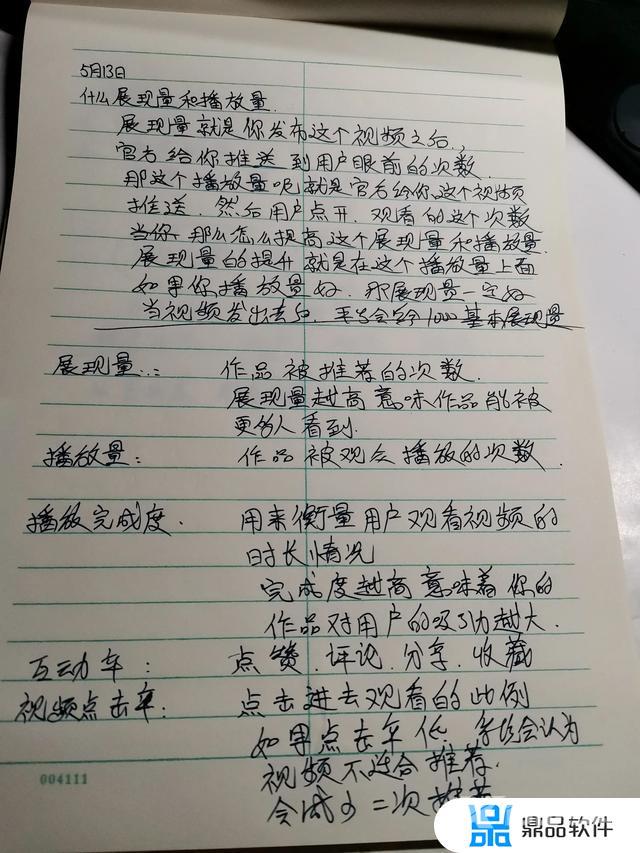 5月13日
什么展现量和播放量.
展现量就是你发布这个视频之后,
官方给你推送到用户眼前的次数
那这个播放量呢就是官方给你这个视频
推送.然后用户点开.观看的这个次数
当你.那么怎么提高这个展现量和播放量.
展现量的提升就是在这个播放量上面
如果你播放量好.那展现量一定好
当视频发出去后.平台会给1000基本展现量
展现量:: 作品被推荐的次数.
展现量越高意味作品能被
更多人看到.
播放量: 作品被观众播放的次数.
播放完成度. 用来衡量用户观看视频的
时长情况
完成度越高意味着你的
作品对用户的吸引力越大.
互动率: 点赞.评论.分享.收藏
视频点击率: 点击进去观看的比例
如果点击率低.系统会认为
视频不适合推荐.
会减少二次推荐
004111
鼎品软件